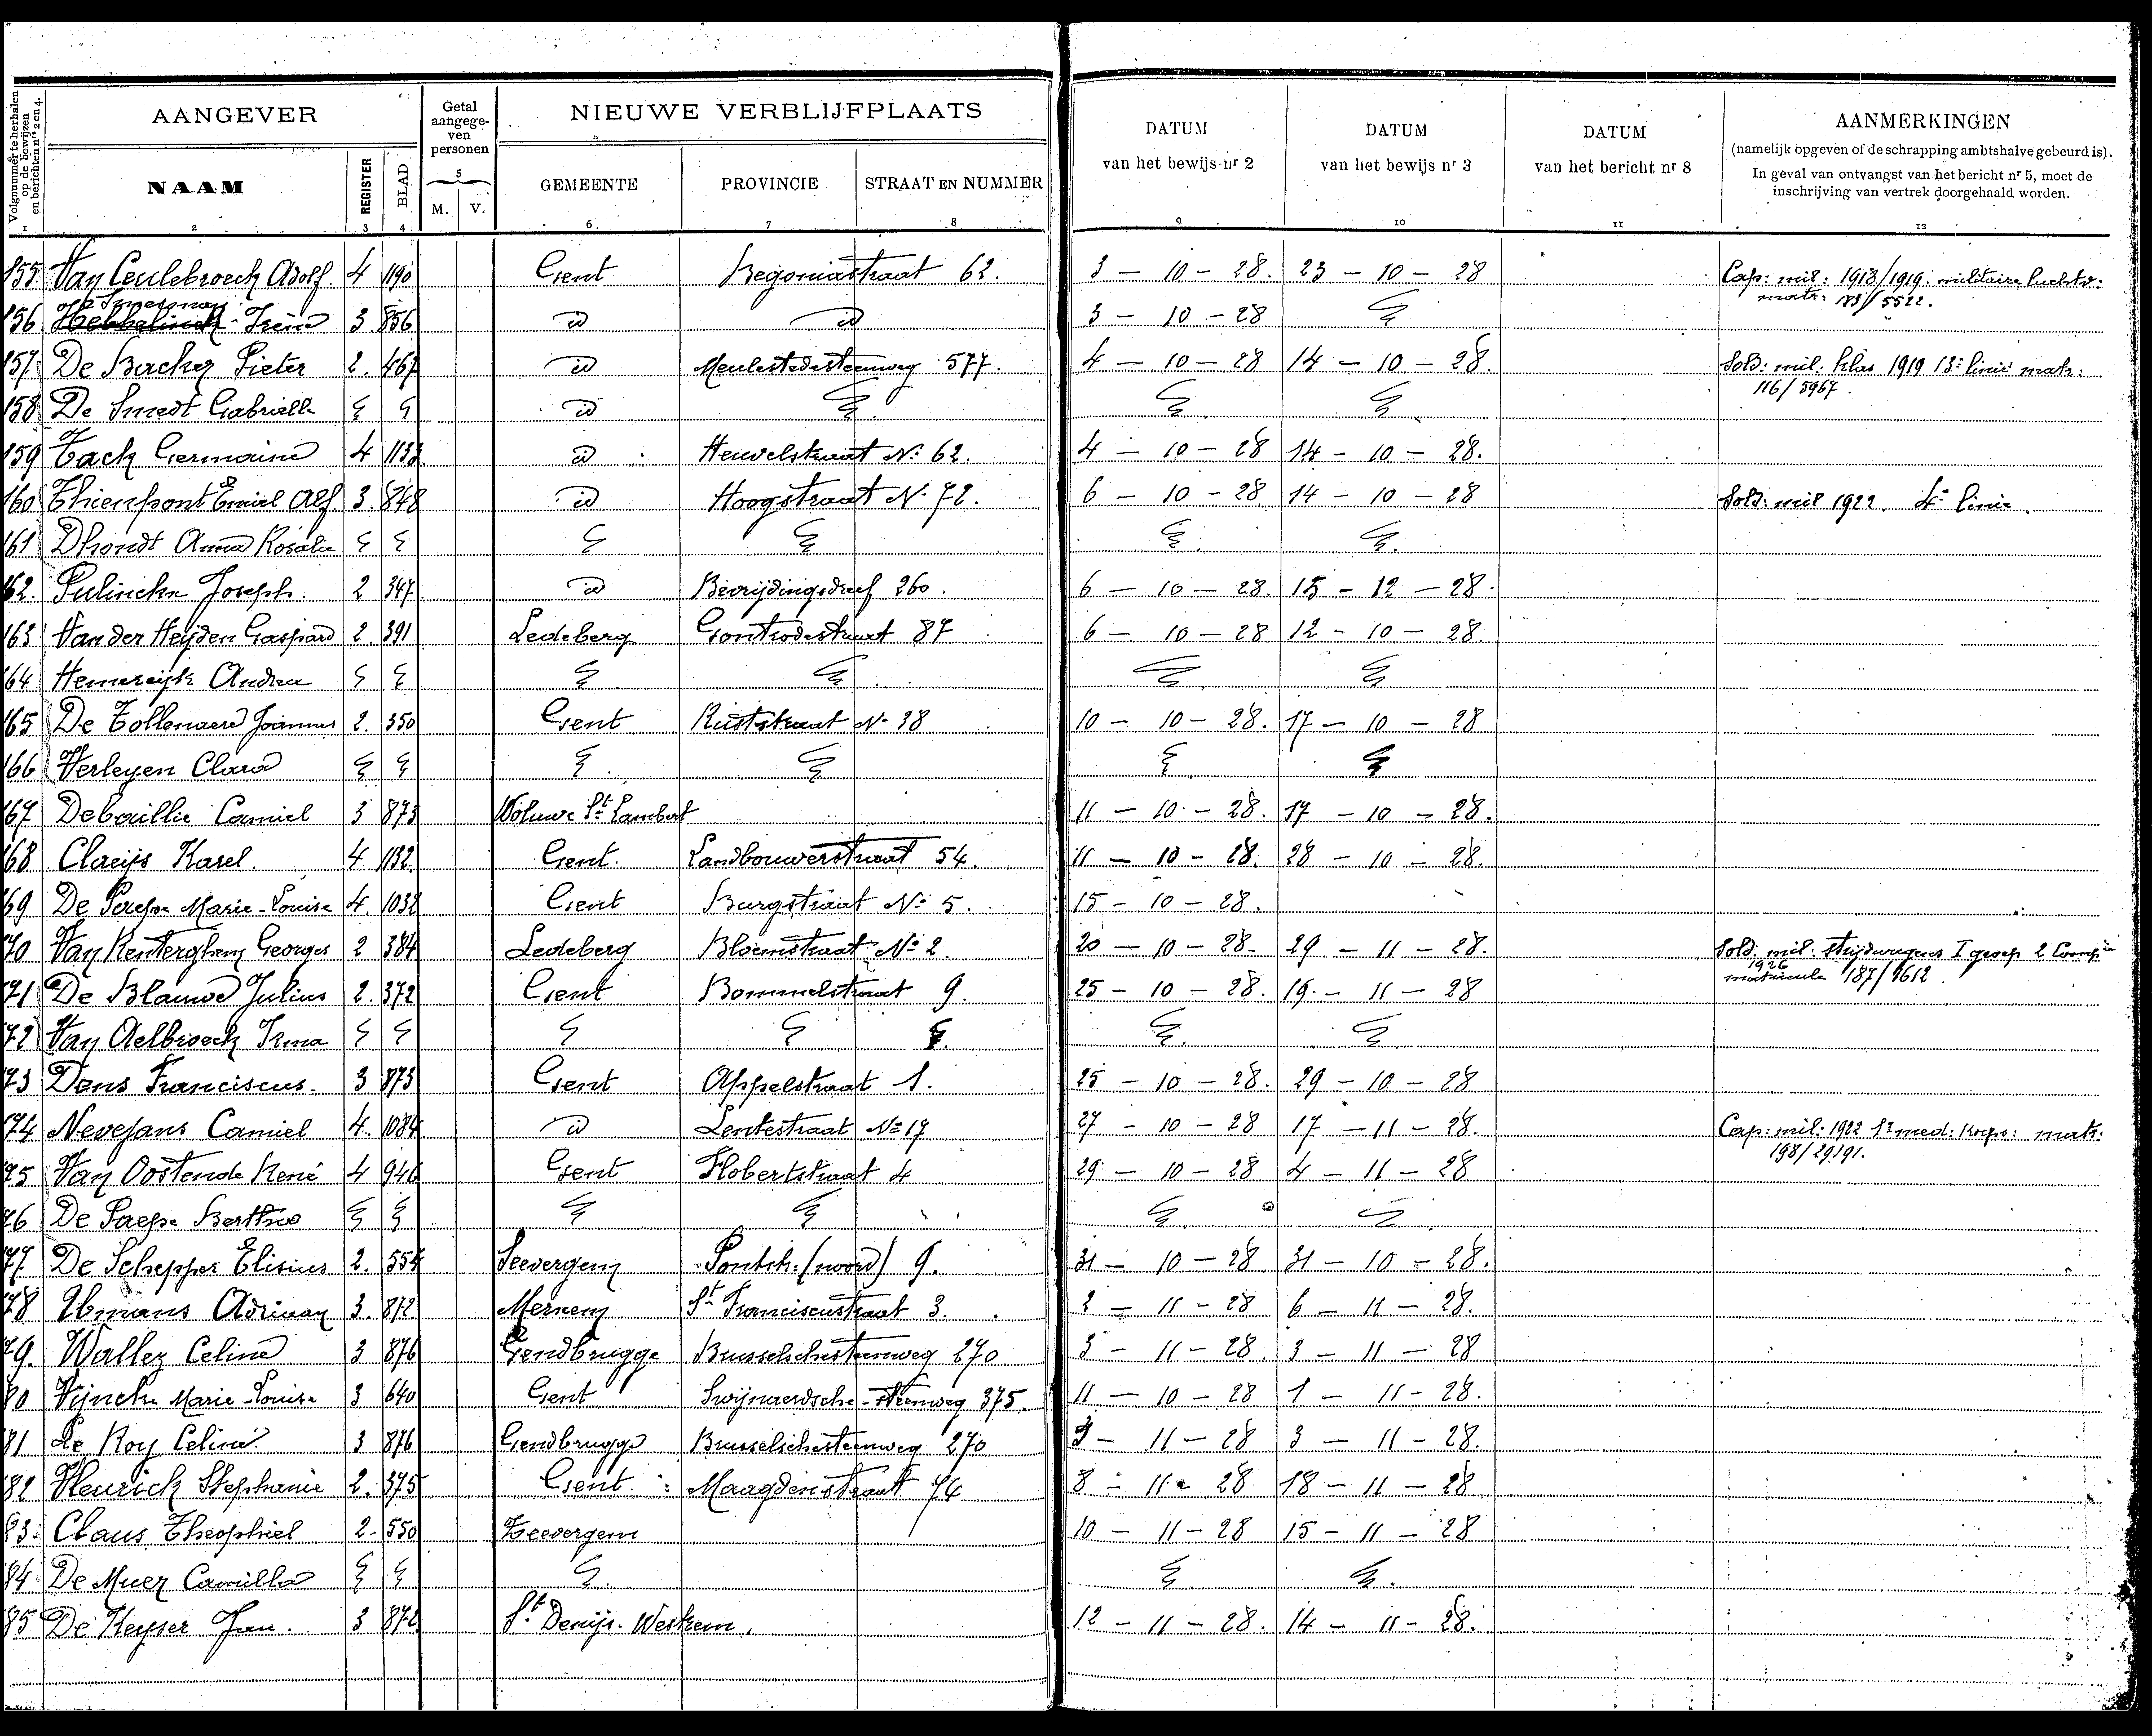 AANGEVER
Getal aangegeven personen
NIEUWE VERBLIJFPLAATS
DATUM van het bewijs nr 2
DATUM van het bewijs nr 3
DATUM van het bericht nr 8
AANMERKINGEN
(namelijk opgeven of de schrapping ambtshalve gebeurd is).
In geval van ontvangst van het bericht nr 5, moet de
inschrijving van vertrek doorgehaald worden.
Volgnummer te herhalen op de bewijzen en berichten nrs 2 en 4.
NAAM REGISTER BLAD M. V. GEMEENTE PROVINCIE STRAAT EN NUMMER
1 2 3 4 5 6 7 8 9 10 11 12
155 Van Ceulebroeck Adolf. 4 1190 Gent Begoniastraat 62. 3 - 10 - 28. 23 - 10 - 28 Cap: mil: 1918/1919 militaire
matr: 183/5522.
156 Irèna 3 856 id id 3 - 10 - 28
157 De Backer Pieter 2. 467 id Meulestedesteenweg 577. 4 - 10 - 28 14 - 10 - 28. Sold: mil: klas 1919 13e linie matr:
116/5967.
158 De Smedt Gabrielle id
159 Tack Germaine 4 1133 id Heuvelstraat No 62. 4 - 10 - 28 14 - 10 - 28.
160 Thienpont Emiel Alf. 3. 848 id Hoogstraat N. 72. 6 - 10 - 28 14 - 10 - 28 Sold: mil 1922. 4e linie.
161 Dhondt Anna Rosalie
162. Pulinckx Joseph. 2 347 id Bevrijdingsdreef 260. 6 - 10 - 28. 15 - 12 - 28.
163 Van der Heyden Gaspard 2. 391 Ledeberg Gontrodestraat 87 6 - 10 - 28 12 - 10 - 28.
164 Hemereijk Andrea
165 De Tollenaere Joannes 2. 350 Gent No 38 10 - 10 - 28. 17 - 10 - 28
166 Verleyen Clara
167 Debaillie Camiel 3 873 Woluwe St Lambert 11 - 10 - 28. 17 - 10 - 28.
168 Claeijs Karel. 4 1132 Gent Landbouwerstraat 54. 11 - 10 - 28. 28 - 10 - 28.
169 De Paepe Marie-Louise 4. 1032 Gent Burgstraat No 5. 15 - 10 - 28.
170 Van Renterghem Georges 2 384 Ledeberg Bloemstraat No 2. 20 - 10 - 28. 29 - 11 - 28. Sold. mil: strijdwagens I 2
1926
matricule 187/9612.
171 De Blauwe Julius 2. 372 Gent Bommelstraat 9. 25 - 10 - 28. 19 - 11 - 28
172 Van Aelbroeck Irma
173 Dens Franciscus. 3 873 Gent Appelstraat 1. 25 - 10 - 28. 29 - 10 - 28
174 Nevejans Camiel 4. 1084 id Lentestraat No 17 27 - 10 - 28 17 - 11 - 28. Cap: mil: 1922 med: Korps: matr:
198/29191.
175 Van Oostende René 4 946 Gent Flobertstraat 4 29 - 10 - 28 4 - 11 - 28
76 De Paepe Bertha
77. De Schepper Elisius 2. 554 Seevergem Pontstr. (noord) 9. 31 - 10 - 28 31 - 10 - 28.
78 Adriaan 3. 872 St Franciscustraat 3. 2 - 11 - 28 6 - 11 - 28.
79. Wallez Celina 3 876 Gendbrugge Brusselschesteenweg 270 3 - 11 - 28. 3 - 11 - 28
80 Vijncke Marie-Louise 3 640 Gent Swijnaerdsche-steenweg 375. 11 - 10 - 28 1 - 11 - 28.
81 Le Roy Celina 3 876 Gendbrugge Brusselschesteenweg 270 3 - 11 - 28 3 - 11 - 28.
82 Stephanie 2. 375 Gent Maagdenstraat 74 8 - 11 - 28 18 - 11 - 28
83. Claus Theophiel 2- 550 Zeevergem 10 - 11 - 28 15 - 11 - 28
84 De Muer Camilla
85 De Keyser Jan. 3 872 St Denijs-Westrem. 12 - 11 - 28. 14 - 11 - 28.